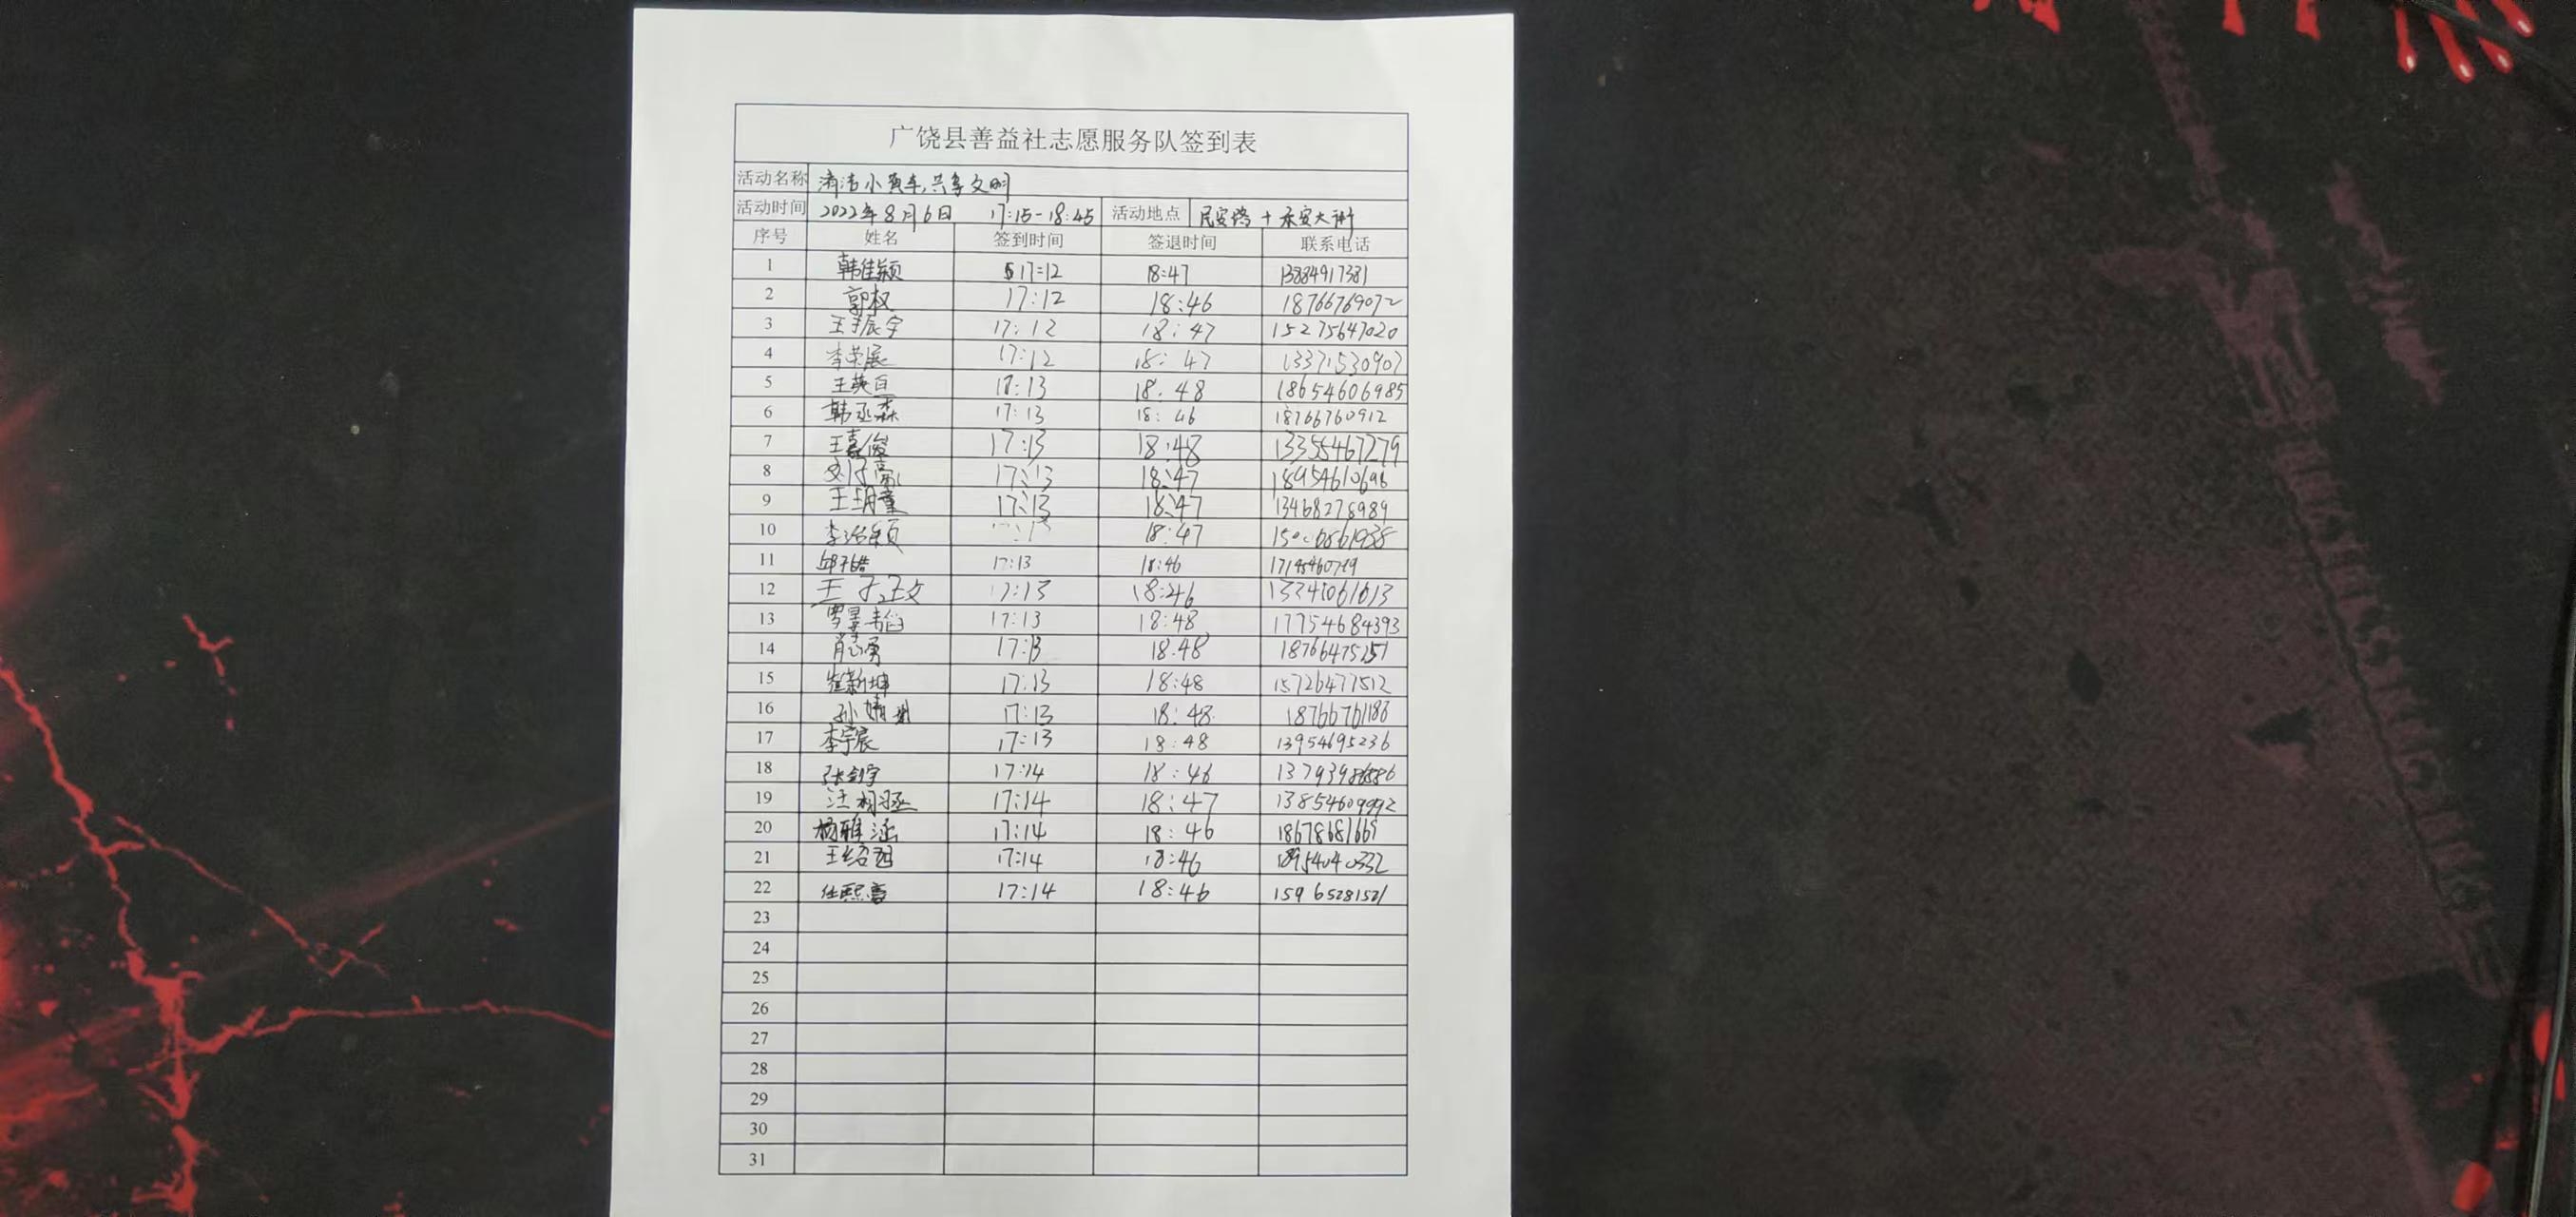 广饶县善益社志愿服务队签到表
活动名称 清洁小黄车,共享文明
活动时间 2022年8月6日 17:15-18:45 活动地点 民安路 + 乐安大街
序号 姓名 签到时间 签退时间 联系电话
1 韩佳颖 17:12 18:47 13884917381
2 郭权 17:12 18:46 18766769072
3 王振宇 17:12 18:47 15275647020
4 李荣展 17:12 18:47 13371530907
5 王英自 18:13 18:48 18654606985
6 韩丞森 17:13 18:46 18766760912
7 王嘉俊 17:13 18:48 13355467279
8 17:13 18:47 18954610696
9 王玥童 17:13 18:47 13468278989
10 18:47
11 邱子皓 17:13 18:46
12 17:13 18:46
13 17:13 18:48 17754684393
14 肖志勇 17:13 18:48
15 崔新坤 17:13 18:48 15726477512
16 17:13 18:48 18766761186
17 李宇宸 17:13 18:48 13954695236
18 17:14 18:46
19 17:14 18:47 13854609992
20 杨雅涵 17:14 18:46 18678681669
21 17:14 18:46
22 任熙 17:14 18:46 15965281521
23
24
25
26
27
28
29
30
31